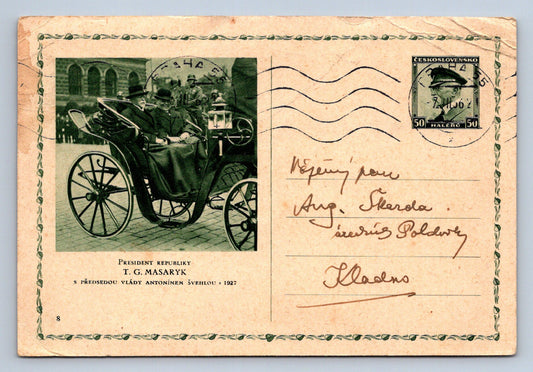 PRAHA 55
ČESKOSLOVENSKO
PRAHA 55
50 HALÉŘŮ 50
PRESIDENT REPUBLIKY
T. G. MASARYK
S PŘEDSEDOU VLÁDY ANTONÍNEM ŠVEHLOU • 1927
8
pan
Aug. Škarda.
úředník Poldovky
Kladno